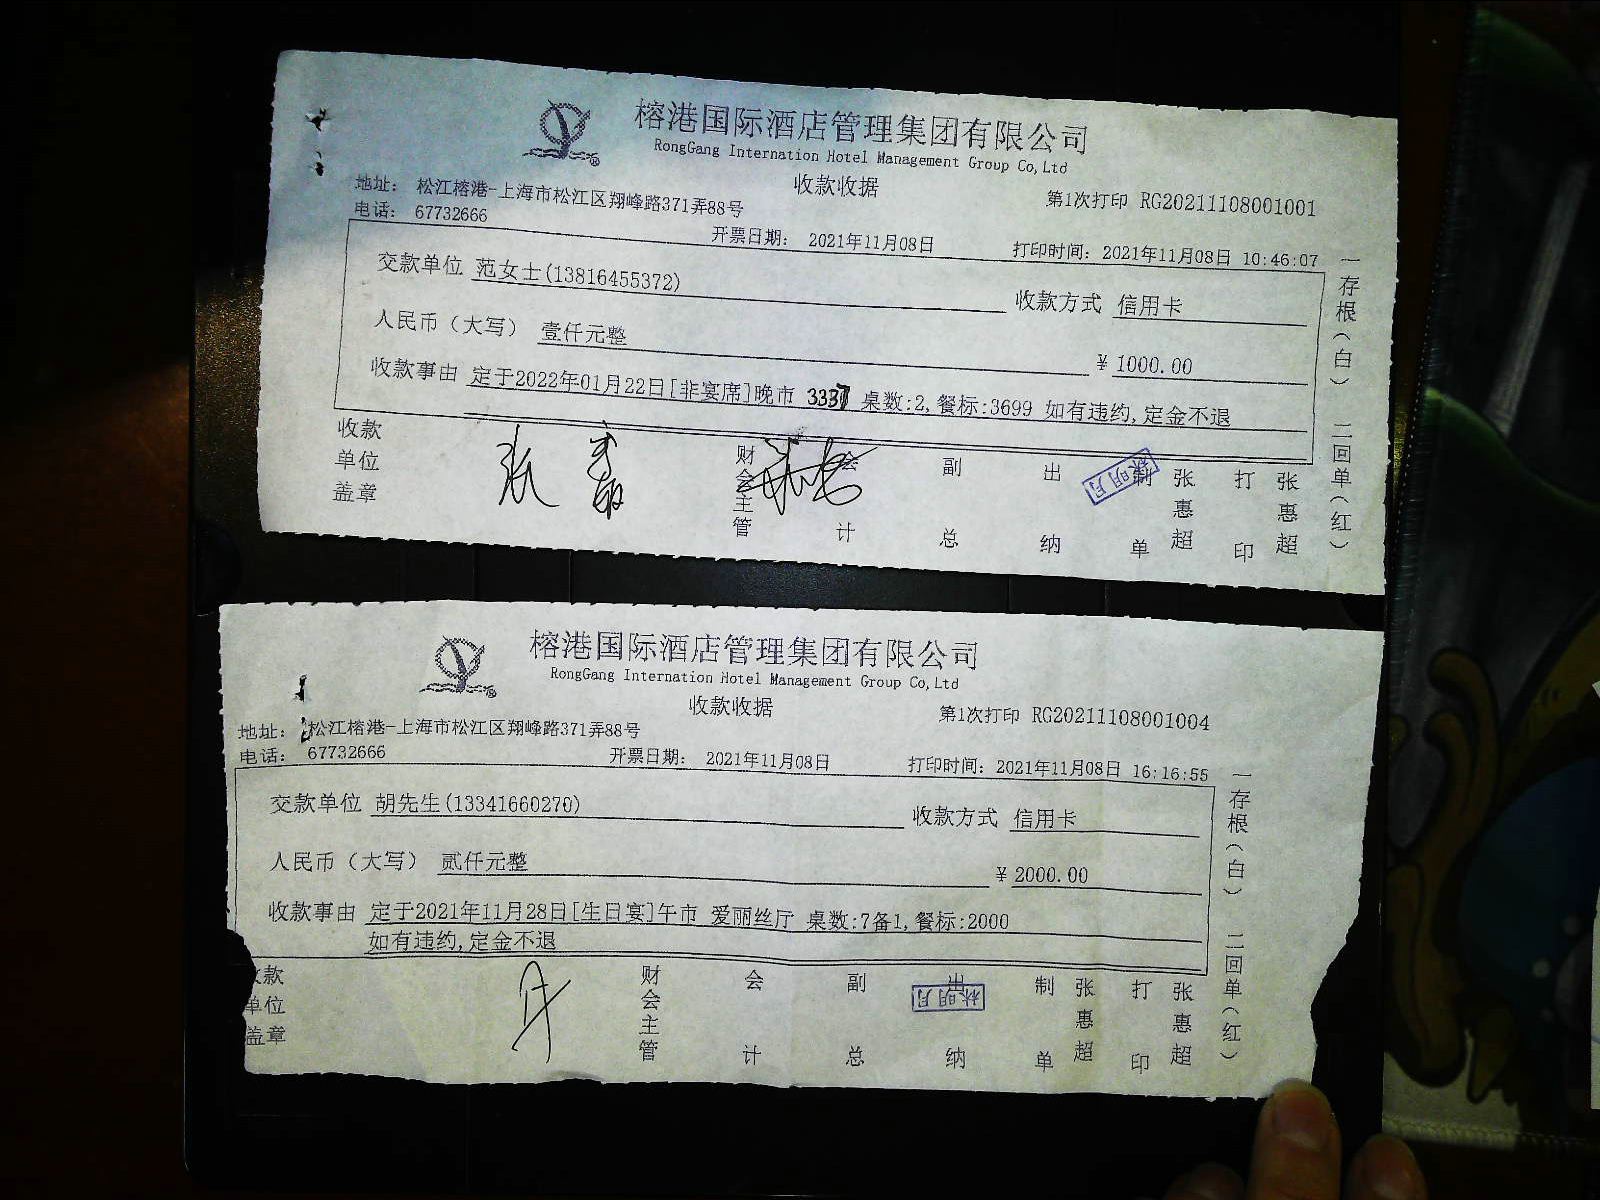 榕港国际酒店管理集团有限公司
RongGang Internation Hotel Management Group Co,Ltd
收款收据
第1次打印 RG20211108001001
地址： 松江榕港-上海市松江区翔峰路371弄88号
电话： 67732666
开票日期： 2021年11月08日
打印时间：2021年11月08日 10:46:07
交款单位 范女士(13816455372)
收款方式 信用卡
人民币（大写） 壹仟元整
¥ 1000.00
收款事由 定于2022年01月22日[非宴席]晚市 3337 桌数:2,餐标:3699 如有违约,定金不退
收款单位盖章
财会主管
会计
副总
出纳
制单
张惠超
打印
张惠超
林明月
一存根（白） 二回单（红）
榕港国际酒店管理集团有限公司
RongGang Internation Hotel Management Group Co,Ltd
收款收据
第1次打印 RG20211108001004
地址： 松江榕港-上海市松江区翔峰路371弄88号
电话： 67732666
开票日期： 2021年11月08日
打印时间：2021年11月08日 16:16:55
交款单位 胡先生(13341660270)
收款方式 信用卡
人民币（大写） 贰仟元整
¥ 2000.00
收款事由 定于2021年11月28日[生日宴]午市 爱丽丝厅 桌数:7备1,餐标:2000
如有违约,定金不退
收款单位盖章
财会主管
会计
副总
出纳
制单
张惠超
打印
张惠超
林明月
一存根（白） 二回单（红）